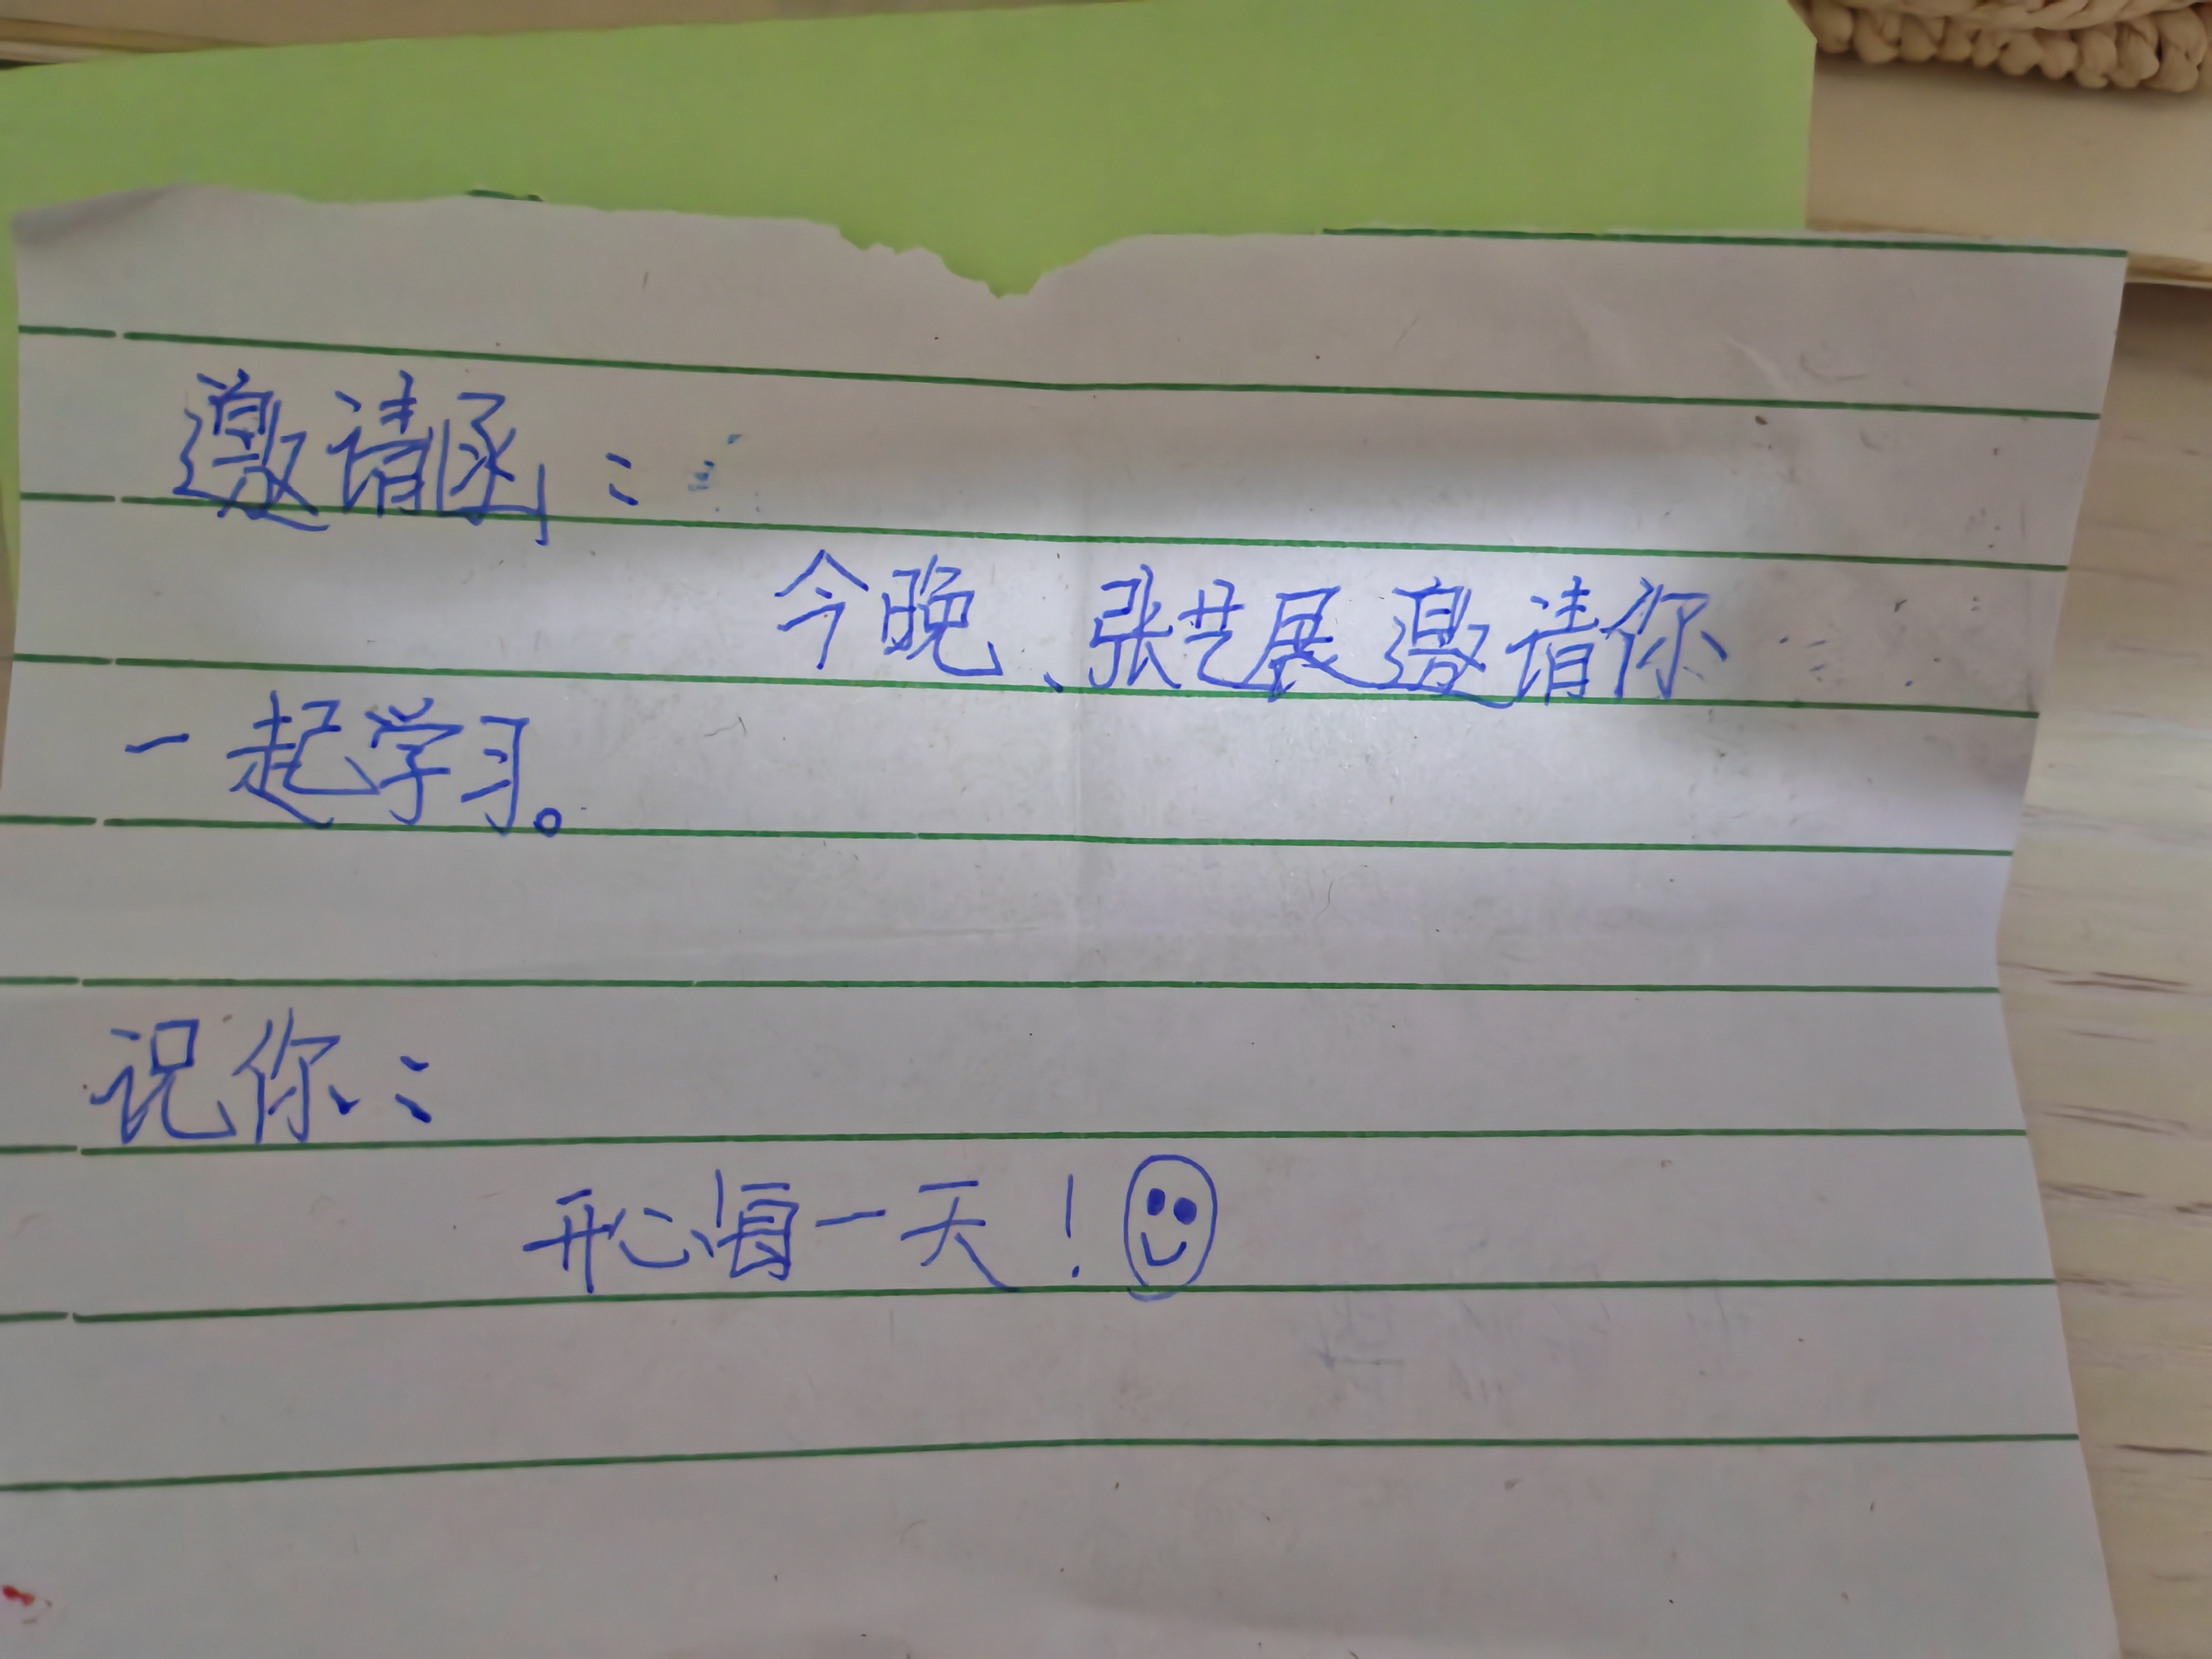 邀请函：
今晚、张艺展邀请你
一起学习。
祝你：
开心每一天！